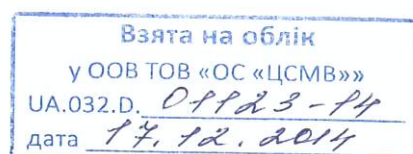 Взята на облік
у ООВ ТОВ «ОС «ЦСМВ»»
UA.032.D. 01123-14
дата 17.12.2014